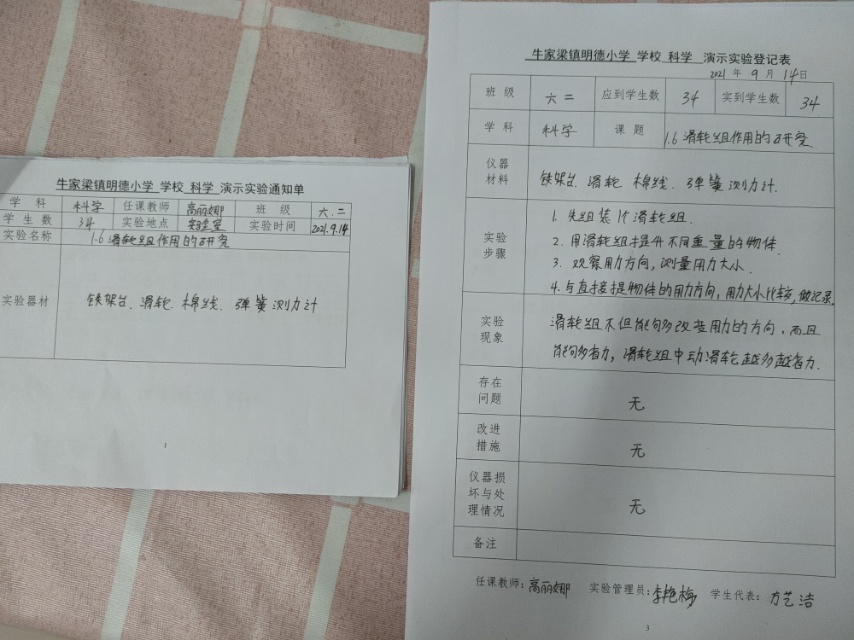 牛家梁镇明德小学 学校 科学 演示实验通知单
学 科 科学 任课教师 高丽娜 班 级 六.二
学 生 数 34 实验地点 实验室 实验时间 2021.9.14
实验名称 1.6 滑轮组作用的研究
实验器材 铁架台、滑轮、棉线、弹簧测力计
1
牛家梁镇明德小学 学校 科学 演示实验登记表
2021 年 9 月 14日
班 级 六 二 应到学生数 34 实到学生数 34
学 科 科学 课 题 1.6 滑轮组作用的研究
仪器
材料 铁架台、滑轮、棉线、弹簧测力计.
实验
步骤
1. 先组装个滑轮组.
2. 用滑轮组提升不同重量的物体.
3. 观察用力方向,测量用力大小.
4. 与直接提物体的用力方向,用力大小比较,做记录.
实验
现象
滑轮组不但能够改变用力的方向,而且
能够省力,滑轮组中动滑轮越多越省力.
存在
问题 无
改进
措施 无
仪器损
坏与处
理情况 无
备注
任课教师:高丽娜 实验管理员:李艳梅 学生代表:方艺洁
3